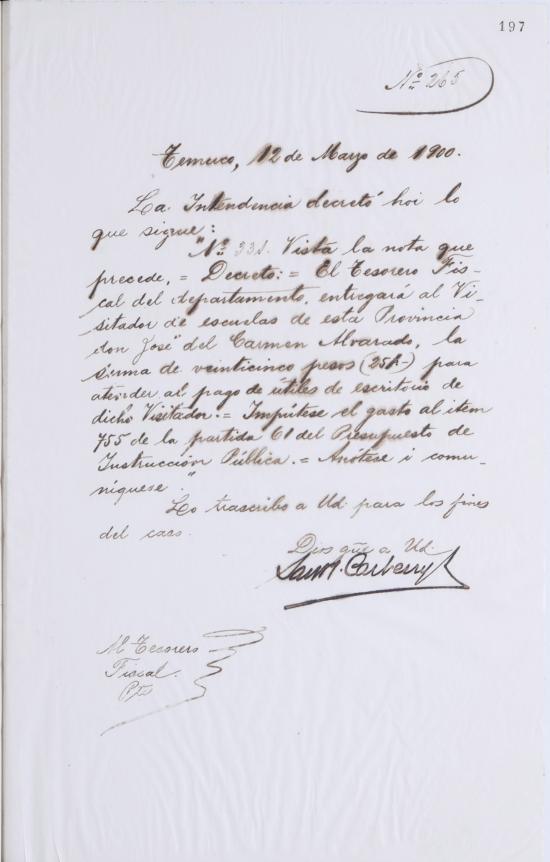 197
No. 265
Temuco, 12 de Mayo de 1900.
La Intendencia decretó hoi lo
que sigue:
"No. 331. Vista la nota que
precede, = Decreto: = El Tesorero Fis-
cal del departamento, entregará al Vi-
sitador de escuelas de esta Provincia
don José del Carmen Alvarado, la
suma de veinticinco pesos (25$-) para
atender al pago de útiles de escritorio de
dicho Visitador. = Impútese el gasto al item
755 de la partida 61 del Presupuesto de
Instrucción Pública. = Anótese i comu-
níquese".
Lo trascribo a Ud. para los fines
del caso.
Dios gue a Ud.
Tesorero
Fiscal.
Pte